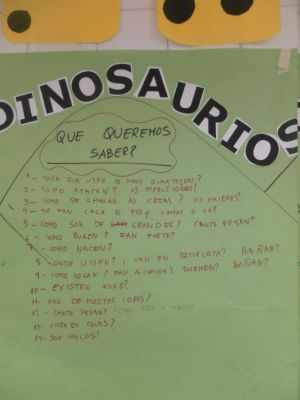 DINOSAURIOS
QUE QUEREMOS
SABER?
1- PARA QUE USAN AS MANS DIANTEIRAS?
2- COMO ATACAN? OS MORDEDORES?
3- COMO SE CHAMAN AS CRÍAS? OS MAIORES?
4- SE FAN CACA E PIS
5- COMO SON DE GRANDES? CANTO PESAN?
6- COMO RUGEN? FAN FORTE?
7- COMO NACEN?
8- ONDE VIVEN? VAN EN BICICLETA? BAÑAN?
9- COMO XOGAN? FAN A COMIDA? DURMEN? BAÑAN?
10- EXISTEN HOXE?
11- HAI DE MOITAS CORES?
12- CANTO PESAN?
13- VIVEN EN COVAS?
14- SON MALOS?